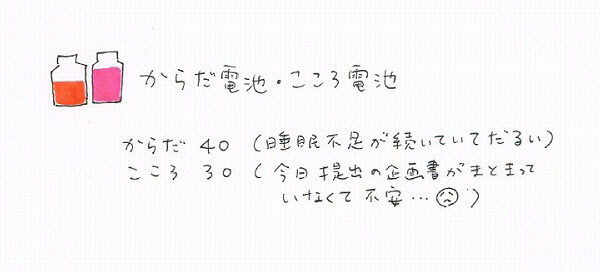 からだ電池・こころ電池
からだ 40 (睡眠不足が続いていてだるい)
こころ 30 (今日提出の企画書がまとまって
いなくて不安…☹)